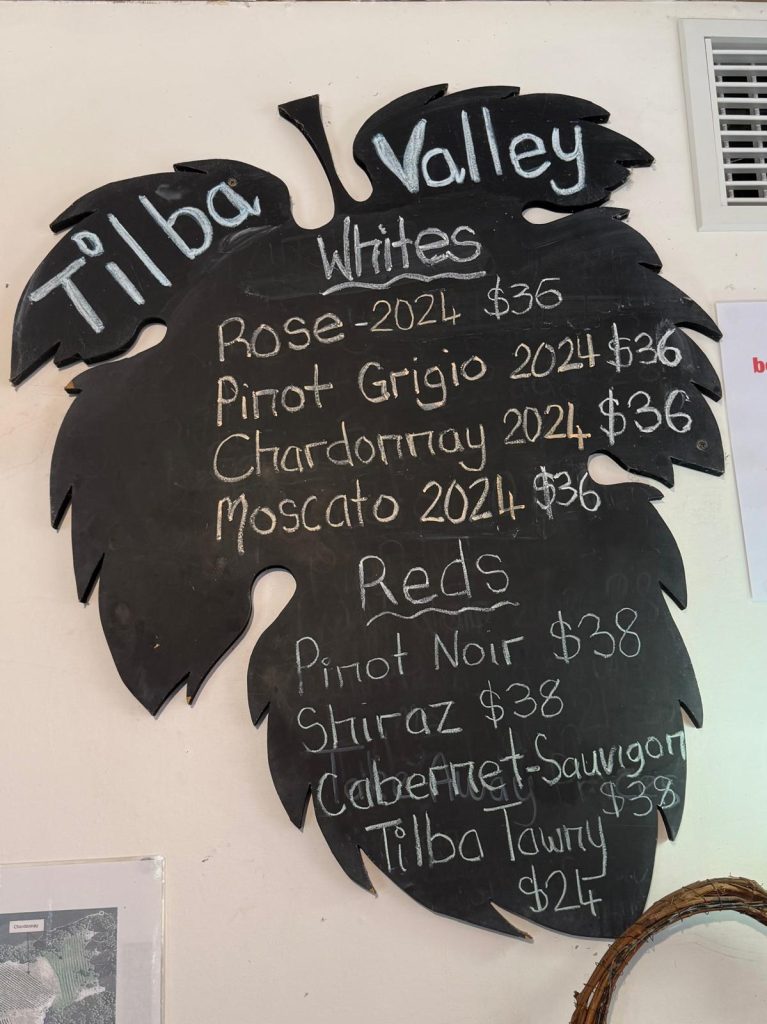 Tilba Valley
Whites
Rose - 2024 $36
Pinot Grigio 2024 $36
Chardonnay 2024 $36
Moscato 2024 $36
Reds
Pinot Noir $38
Shiraz $38
Cabernet-Sauvigon
$38
Tilba Tawny
$24
Chardonnay